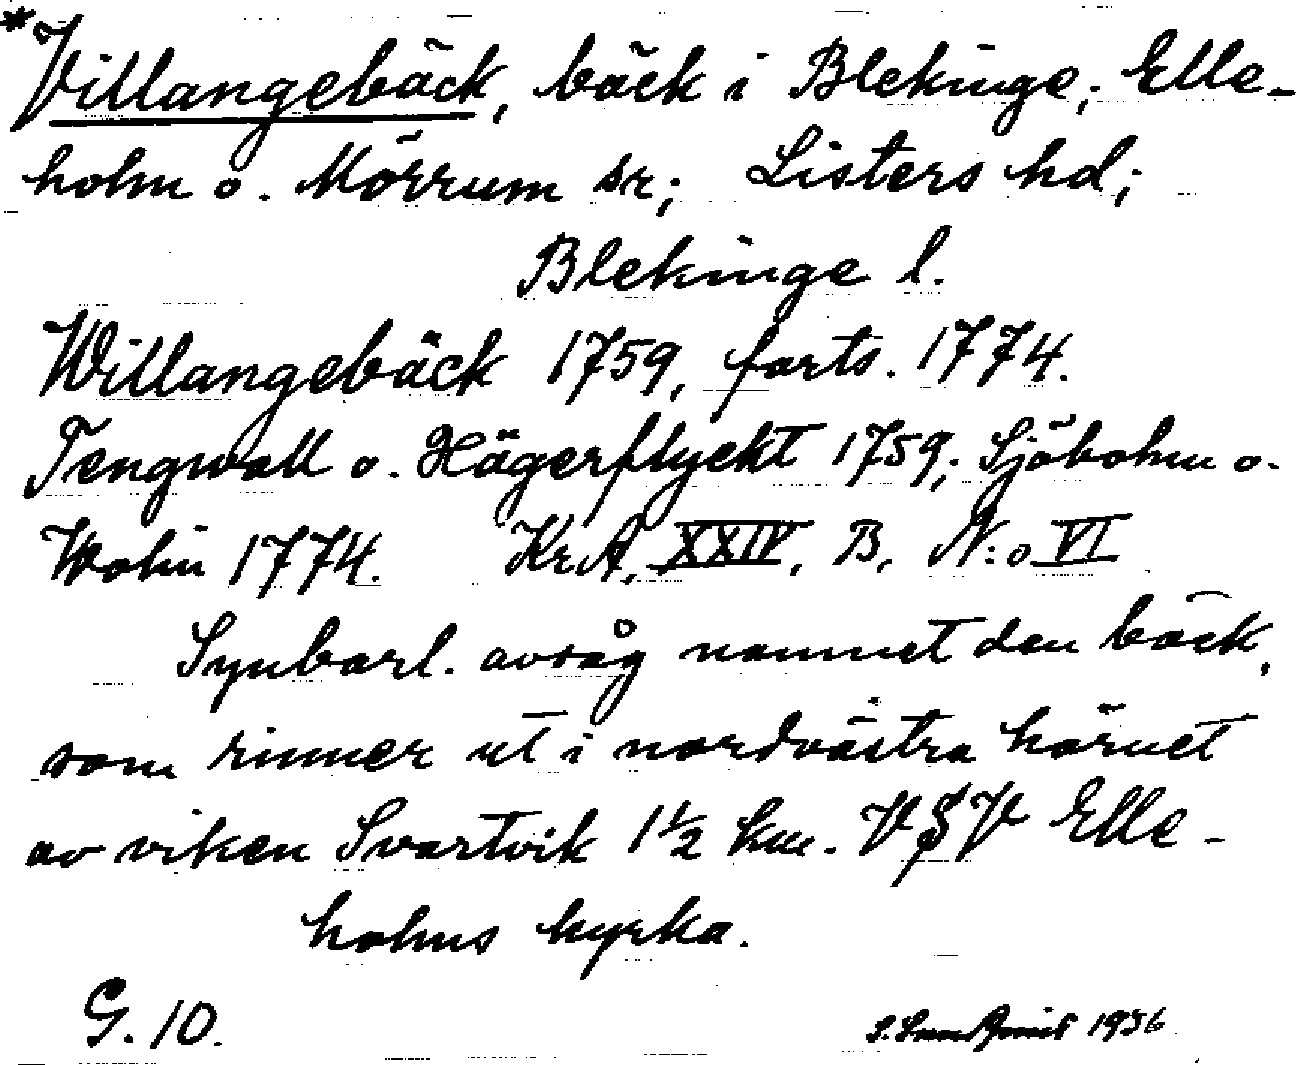 *Villangebäck, bäck i Blekinge; Elle-
holm o. Mörrum sr; Listers hd;
Blekinge l.
Willangebäck 1759, forts. 1774.
Tengwall o. Hägerflycht 1759; Sjöbohm o.
Wohn 1774. Kr.A. XXIV, B, N:o VI
Synbarl. avsåg namnet den bäck,
som rinner ut i nordvästra hörnet
av viken Svartvik 1½ km. VSV Elle-
holms kyrka.
G. 10. 1936